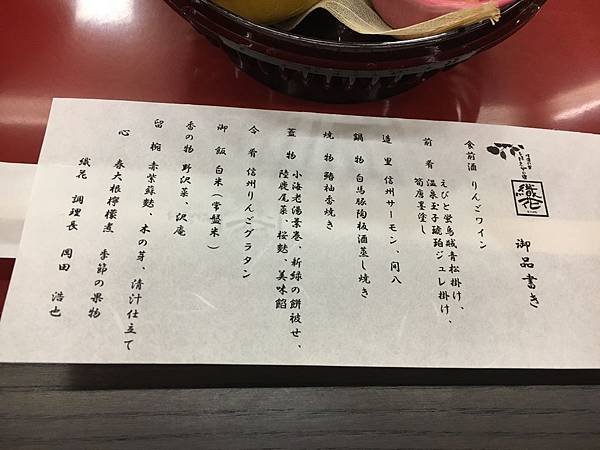 織花
御品書き
食前酒 りんごワイン
前肴 えびと蛍烏賊青松掛け、
温泉玉子琥珀ジュレ掛け、
筍唐墨塗し
造里 信州サーモン、間八
鍋物 白馬豚陶板酒蒸し焼き
焼物 鰆柚香焼き
蓋物 小海老湯葉巻、新緑の餅被せ、
陸鹿尾菜、桜麩、美味餡
合肴 信州りんごグラタン
御飯 白米(常盤米)
香の物 野沢菜、沢庵
留椀 赤紫蘇麩、木の芽、清汁仕立て
心 春大根檸檬煮 季節の果物
織花 調理長 岡田 浩也